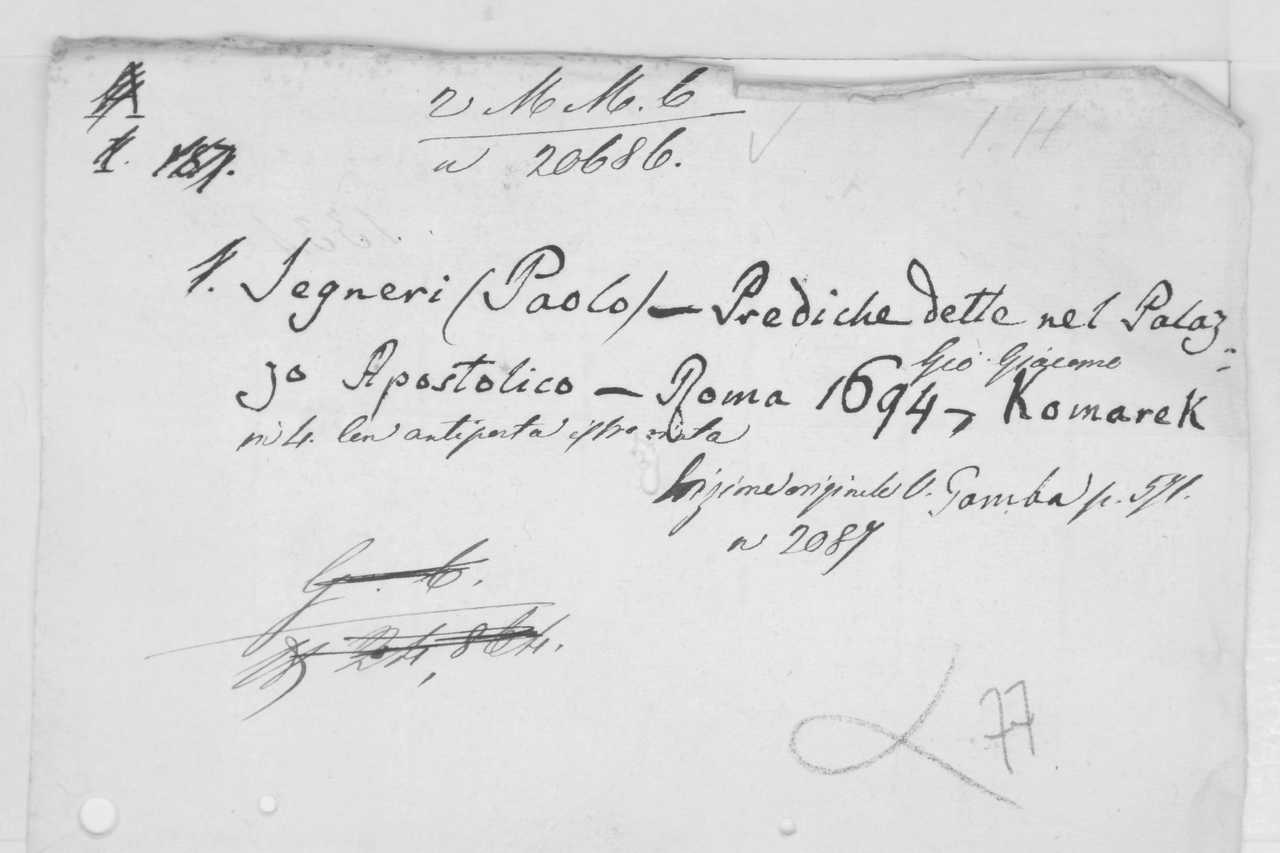 2 M M. C
n 20686.
1. Segneri (Paolo) — Prediche dette nel Palaz=
zo Apostolico — Roma 1694, Gio. Giacomo Komarek
in 4. Con antiporta
Edizione originale V. Gamba p. 571.
n 2087
G. C.
24,864.
77